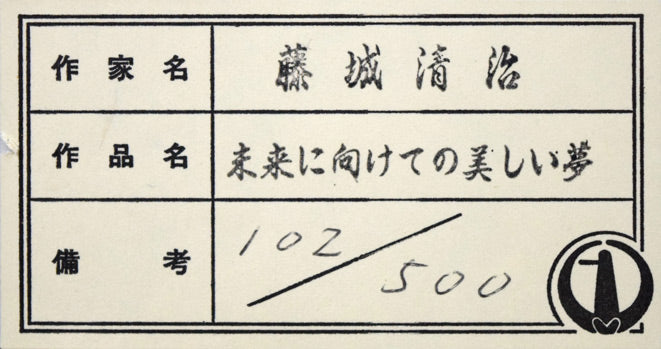 作家名 藤城清治
作品名 未来に向けての美しい夢
備考 102/500